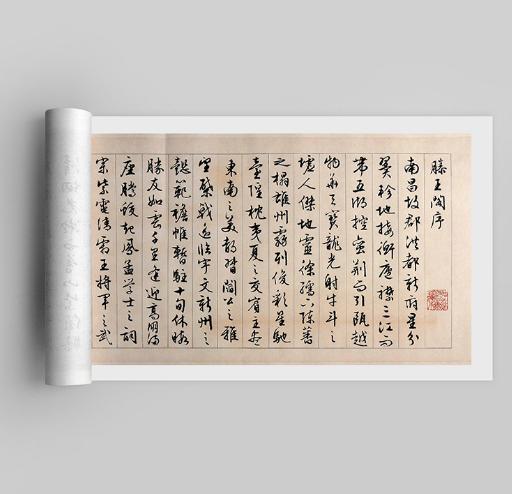 滕王閣序
南昌故郡洪都新府星分
翼軫地接衡廬襟三江而
帶五湖控蠻荊而引甌越
物華天寶龍光射牛斗之
墟人傑地靈徐孺下陳蕃
之榻雄州霧列俊彩星馳
臺隍枕夷夏之交賓主盡
東南之美都督閻公之雅
望棨戟遙臨宇文新州之
懿範襜帷暫駐十旬休暇
勝友如雲千里逢迎高朋滿
座騰蛟起鳳孟学士之詞
宗紫電清霜王將軍之武